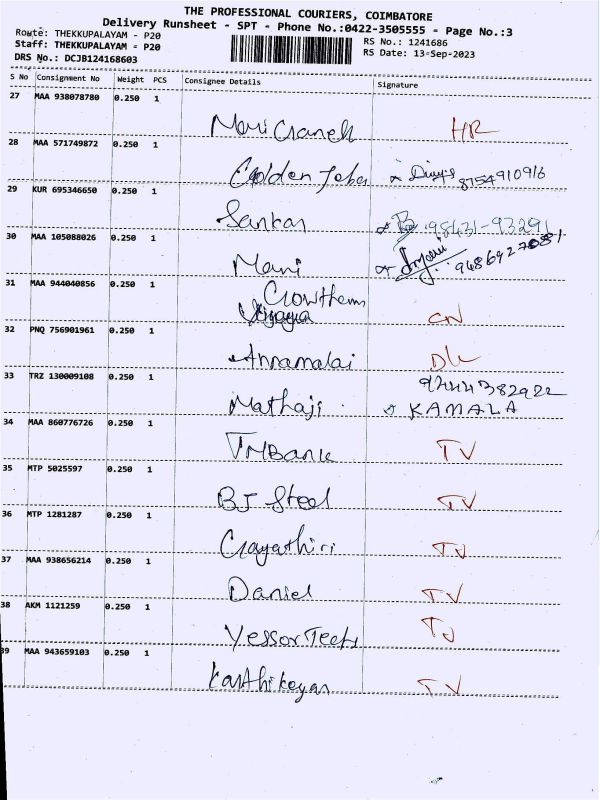 THE PROFESSIONAL COURIERS, COIMBATORE
Delivery Runsheet - SPT - Phone No.:0422-3505555 - Page No.:3
Route: THEKKUPALAYAM - P20
RS No.: 1241686
Staff: THEKKUPALAYAM - P20
RS Date: 13-Sep-2023
DRS No.: DCJB124168603
S No Consignment No Weight PCS Consignee Details Signature
27 MAA 938078780 0.250 1
HR
28 MAA 571749872 0.250 1
Golden 8754910916
29 KUR 695346650 0.250 1
Sankar 98431-93291
30 MAA 105088026 0.250 1
Mani
31 MAA 944040856 0.250 1
Vijaya
32 PNQ 756901961 0.250 1
Annamalai DL
33 TRZ 130009108 0.250 1
9244382922
Mathaji KAMALA
34 MAA 860776726 0.250 1
TMBank TV
35 MTP 5025597 0.250 1
BJ Steel TV
36 MTP 1281287 0.250 1
Gayathiri TV
37 MAA 938656214 0.250 1
Daniel TV
38 AKM 1121259 0.250 1
Yessor Teets TJ
39 MAA 943659103 0.250 1
Karthikeyan TV